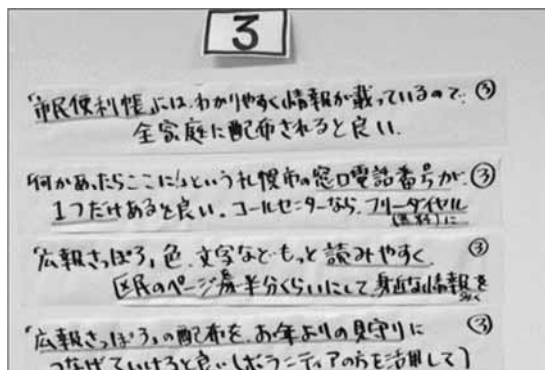 3
「市民便利帳」には、わかりやすく情報が載っているので、③
全家庭に配布されると良い.
「何かあったらここに!」という札幌市の窓口電話番号が、③
1つだけあると良い。コールセンターなら、フリーダイヤル
(無料)に
「広報さっぽろ」色、文字など、もっと読みやすく ③
区民のページ 半分くらいにして、身近な情報を
多く
「広報さっぽろ」の配布を、お年よりの見守りに ③
つなげていけると良い(ボランティアの方を活用して)